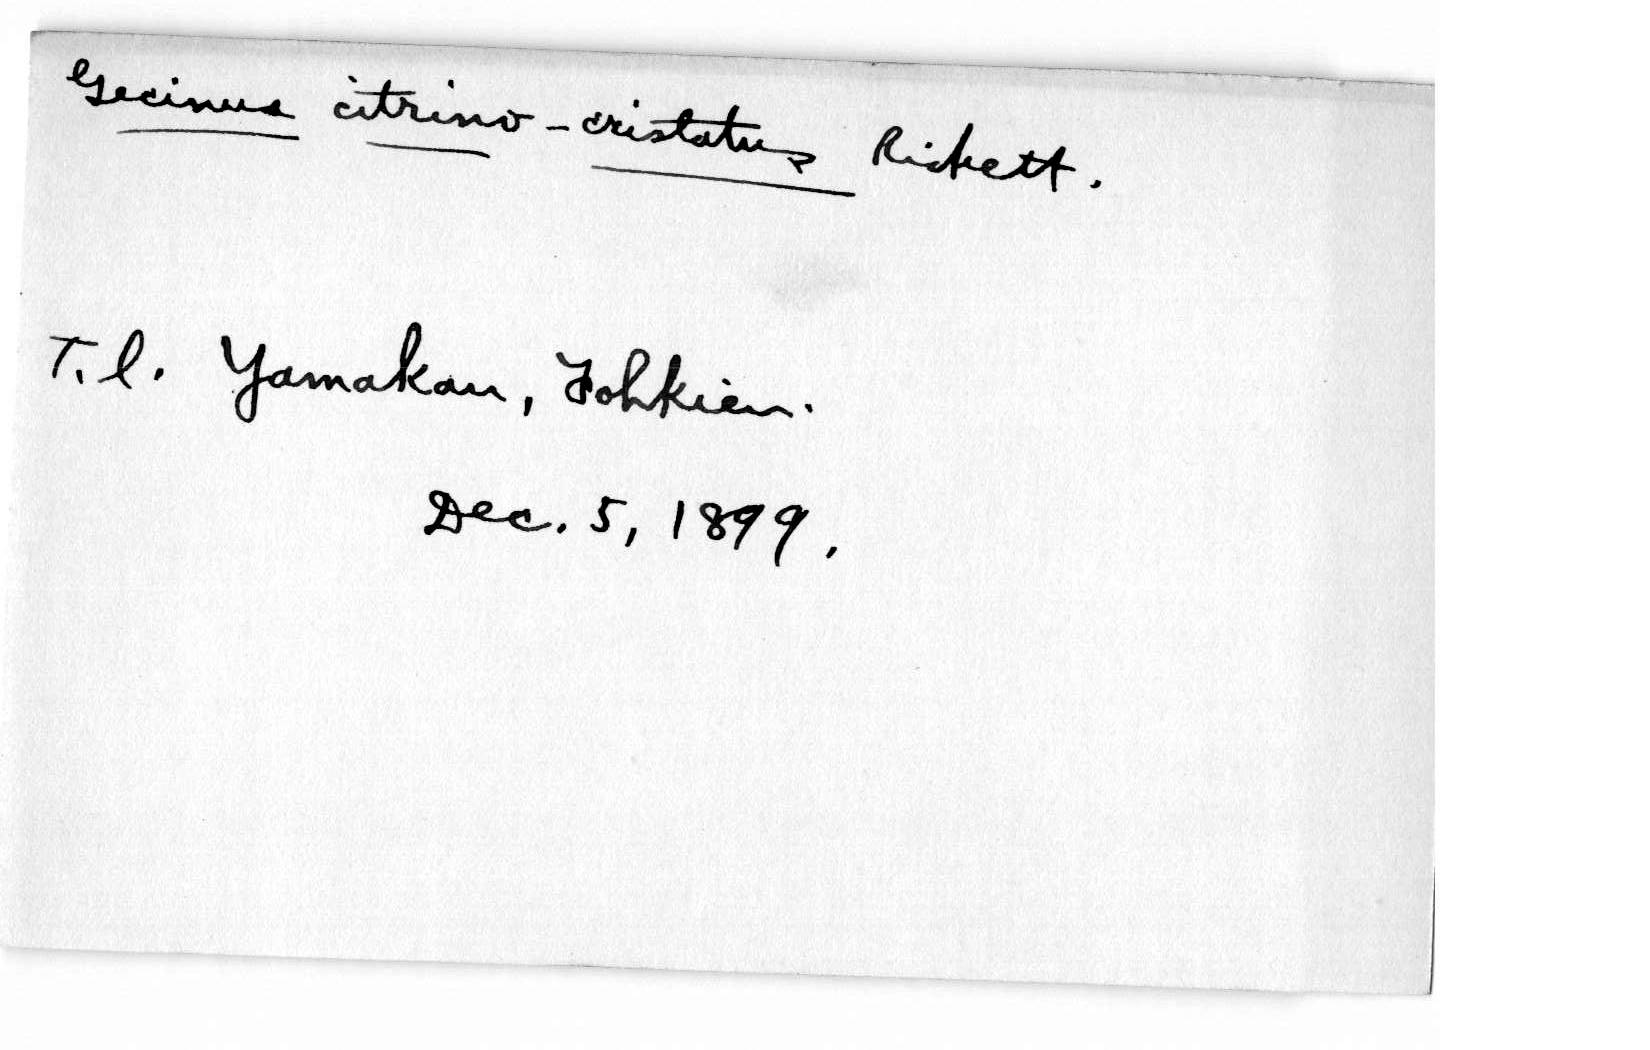 Gecinus citrino-cristatus Rickett.
T.l. Yamakan, Fohkien.
Dec. 5, 1899.